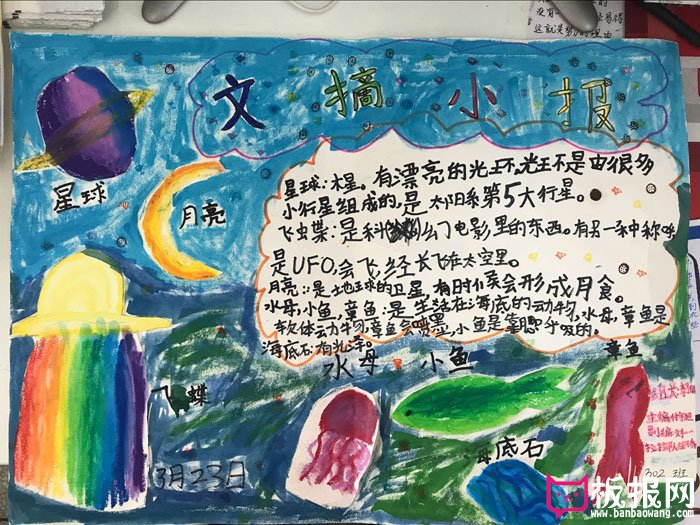 文摘小报
星球
月亮
星球:木星。有漂亮的光环,光环不是由很多
小行星组成的,是太阳系第5大行星。
飞虫蝶:是科幻电影里的东西。有另一种称呼
是UFO,会飞,经长飞在太空里。
月亮:是地球的卫星,有时候会形成月食。
水母,小鱼,章鱼:是生活在海底的动物,水母,章鱼是
软体动物,章鱼会喷墨,小鱼是靠腮呼吸的。
海底石:有光泽。
水母
小鱼
章鱼
飞蝶
底石
3月23日
主编
副编
302 班
板报网
www.banbaowang.com